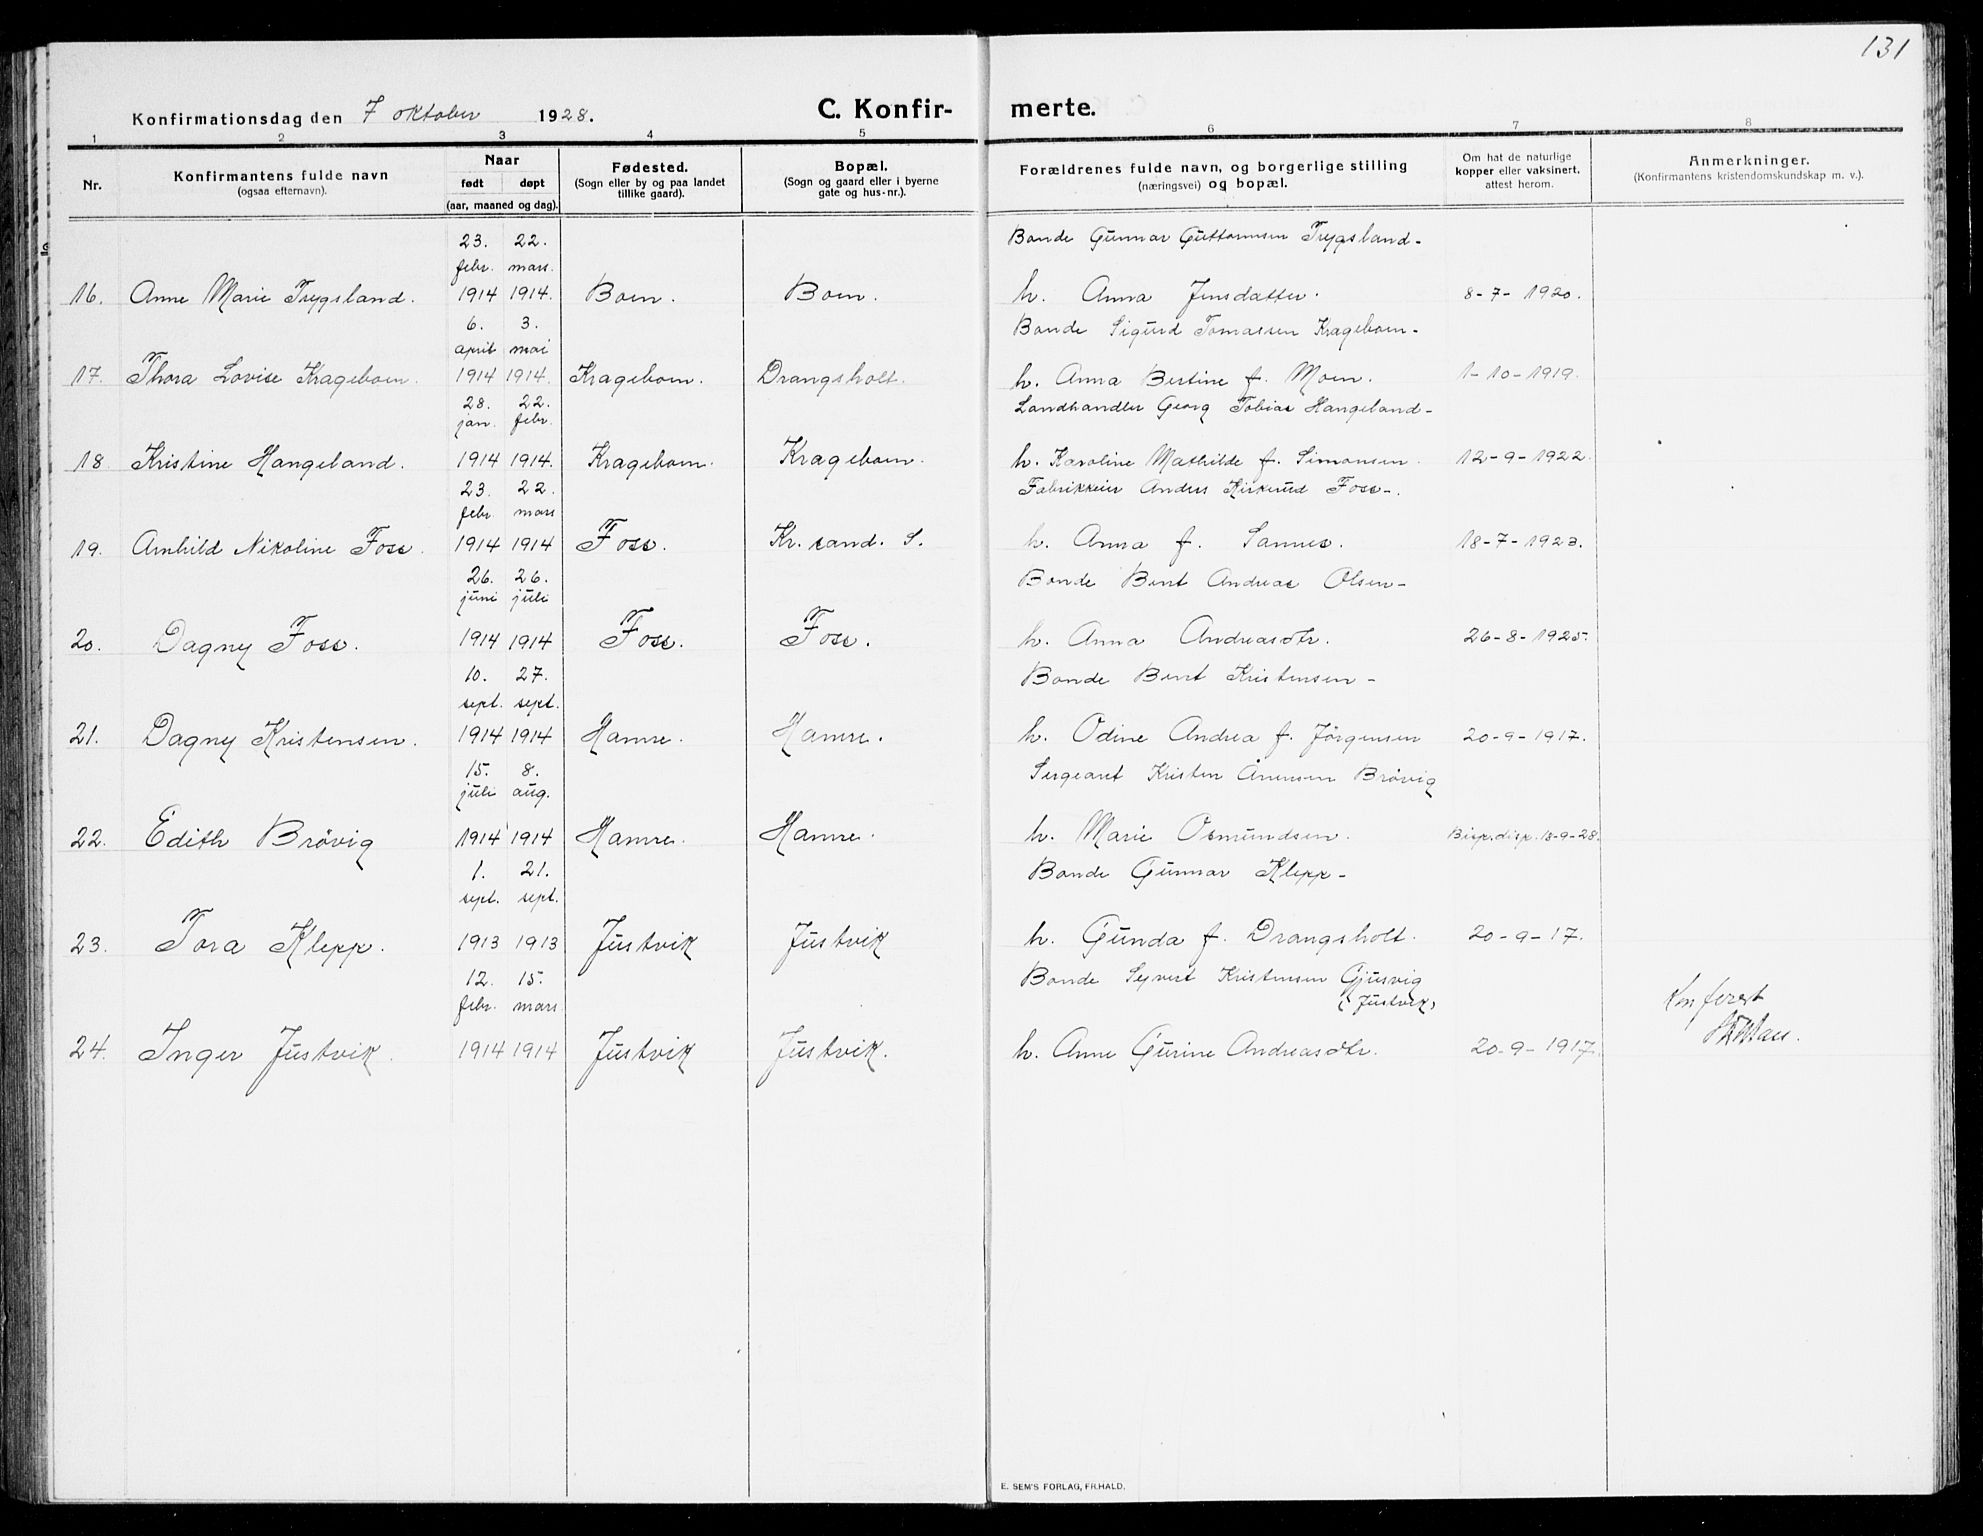 131
Konfirmationsdag den 7 oktober 1928. C. Konfirmerte.
1 2 3 4 5 6 7 8
Nr.
Konfirmantens fulde navn
(ogsaa efternavn).
Naar
født døpt
(aar, maaned og dag).
Fødested.
(Sogn eller by og paa landet
tillike gaard).
Bopæl.
(Sogn og gaard eller i byerne
gate og hus-nr.).
Forældrenes fulde navn, og borgerlige stilling
(næringsvei) og bopæl.
Om hat de naturlige
kopper eller vaksinert,
attest herom.
Anmerkninger.
(Konfirmantens kristendomskundskap m. v.).
23. 22. Bonde Gunnar Guttormsen Trygsland-
febr. mars.
16. Anne Marie Trygsland. 1914 1914. Boen. Boen. h. Anna Jensdatter. 8-7-1920.
6. 3. Bonde Sigurd Tomassen Krageboen-
april mai
17. Thora Lovise Krageboen. 1914 1914. Krageboen. Drangsholt. h. Anna Bertine f. Moen. 1-10-1919.
28. 22. Landhandler Georg Tobias Hangeland-
jan. febr.
18 Kristine Hangeland. 1914 1914. Krageboen. Krageboen. h. Karoline Mathilde f. Simonsen. 12-9-1922.
23. 22. Fabrikkeier Anders Kirkerud Foss-.
febr. mars
19. Arnhild Nikoline Foss. 1914 1914 Foss. Kr.sand. S. h. Anna f. Sannes. 18-7-1923.
26. 26. Bonde Bent Andreas Olsen-
juni juli
20. Dagny Foss. 1914 1914 Foss. Foss. h. Anna Andreasdtr. 26-8-1925.
10. 27. Bonde Bent Kristensen-
sept. sept.
21. Dagny Kristensen. 1914 1914 Hamre. Hamre. h. Odine Andrea f. Jörgensen 20-9-1917.
15. 8. Sergeant Kristen Ånensen Brövig
juli aug.
22. Edith Brövig 1914 1914 Hamre. Hamre. h. Marie Osmundsen. Bisp.disp. 18-9-28.
1. 21. Bonde Gunnar Klepp-
sept. sept.
23. Tora Klepp. 1913 1913 Justvik Justvik h. Gunda f. Drangsholt. 20-9-17.
12. 15. Bonde Syvert Kristensen Gjusvig
febr. mars (Justvik)
24. Inger Justvik. 1914 1914 Justvik Justvik. h. Anne Gurine Andreasdtr. 20-9-1917.
Konferert
E. SEM'S FORLAG, FR.HALD.